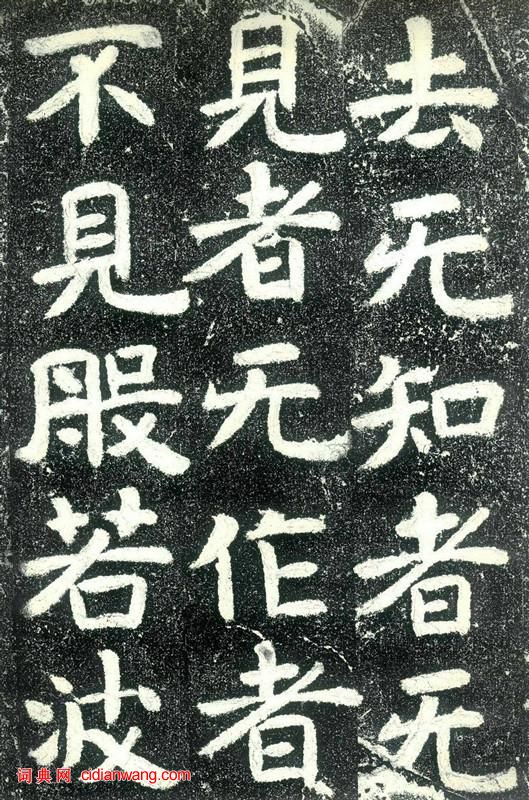 去无知者无
見者无作者
不見般若波
词典网 cidianwang.com